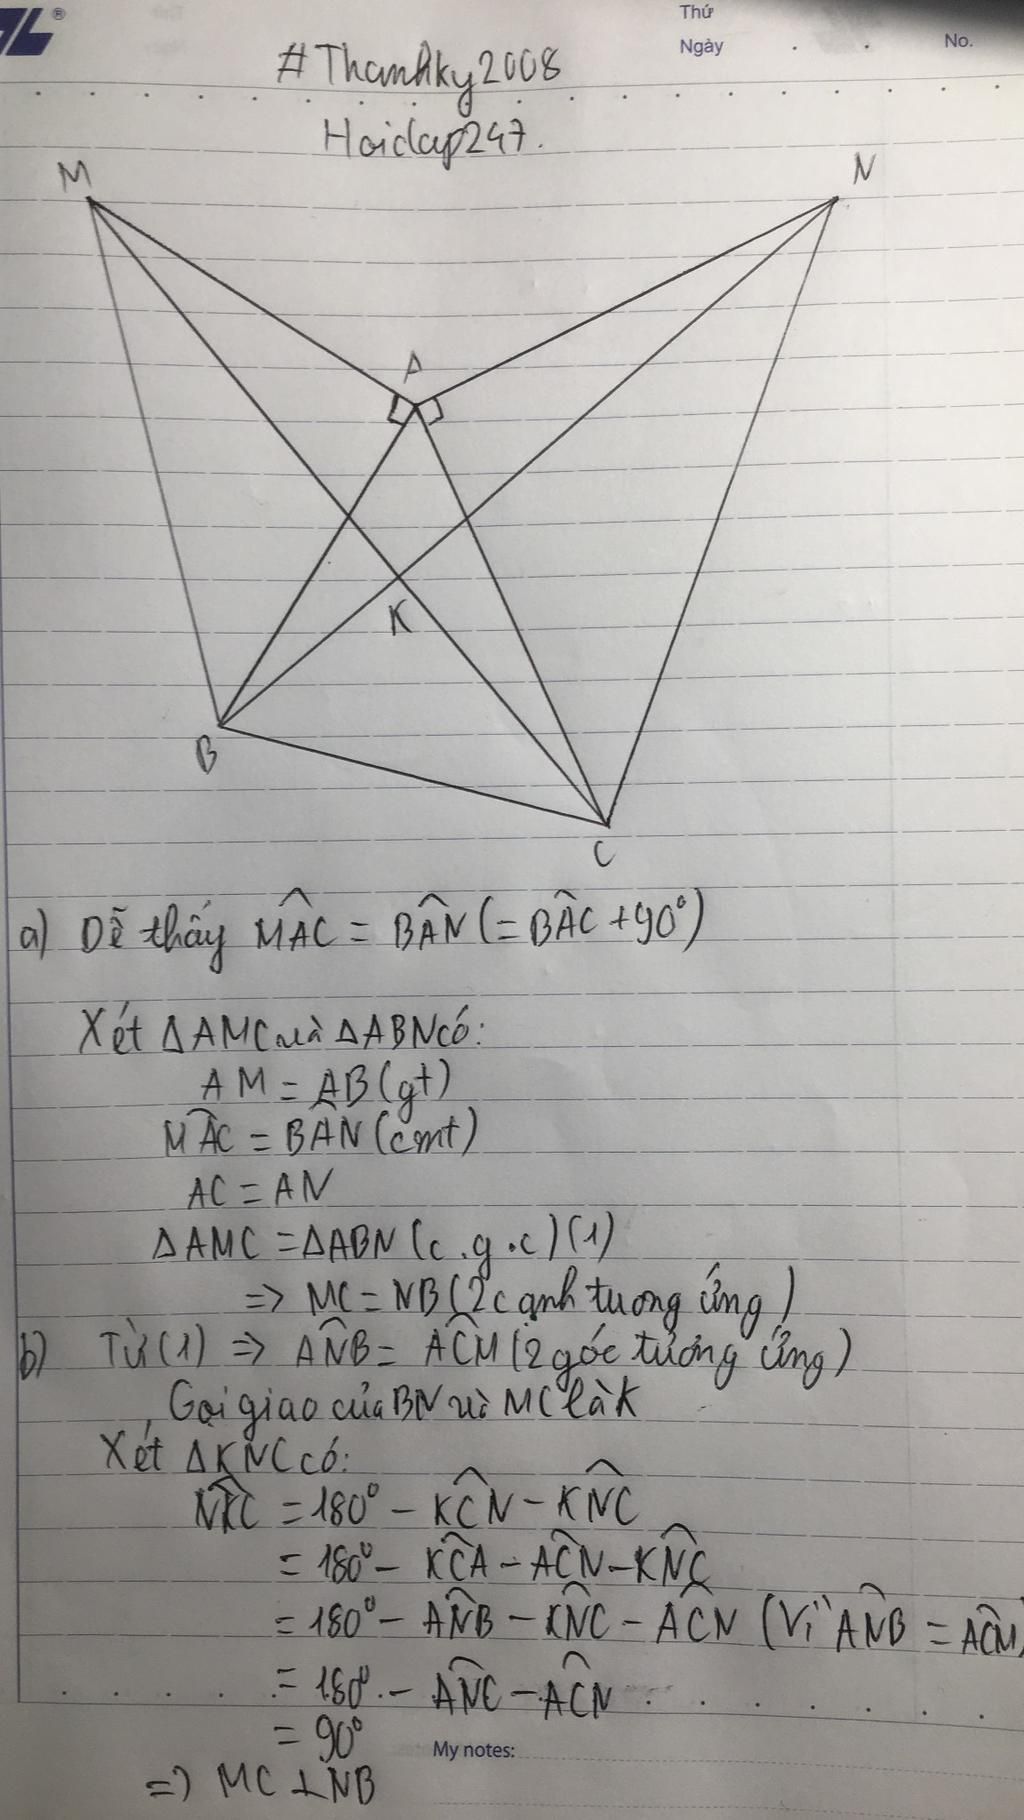 Thứ
Ngày
No.
#Thanhky2008
Hoidap247.
M
N
A
K
B
C
a) Dễ thấy MAC = BAN (= BAC + 90°)
Xét ΔAMC và ΔABN có:
AM = AB (gt)
MAC = BAN (cmt)
AC = AN
ΔAMC = ΔABN (c.g.c) (1)
=> MC = NB (2 cạnh tương ứng)
b) Từ (1) => ANB = ACM (2 góc tương ứng)
Gọi giao của BN và MC là K
Xét ΔKNC có:
NKC = 180° - KCN - KNC
= 180° - KCA - ACN - KNC
= 180° - ANB - KNC - ACN (Vì ANB = ACM)
= 180° - ANC - ACN
= 90°
My notes:
=> MC ⊥ NB